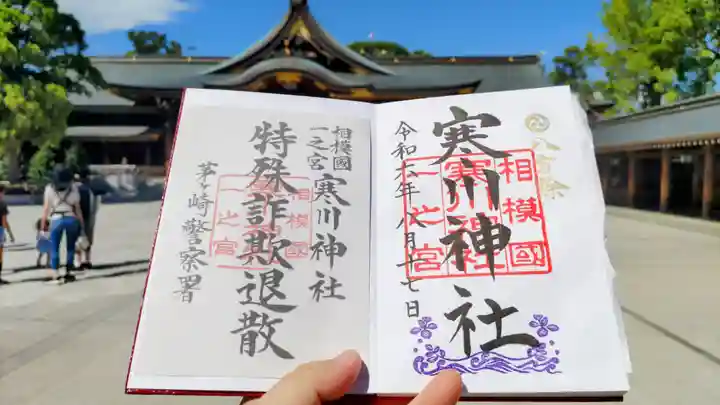 八方除
寒川神社
相模國
一之宮
寒川神社
令和六年八月十七日
相模國
一之宮
寒川神社
特殊詐欺退散
相模國
一之宮
茅ヶ崎警察署